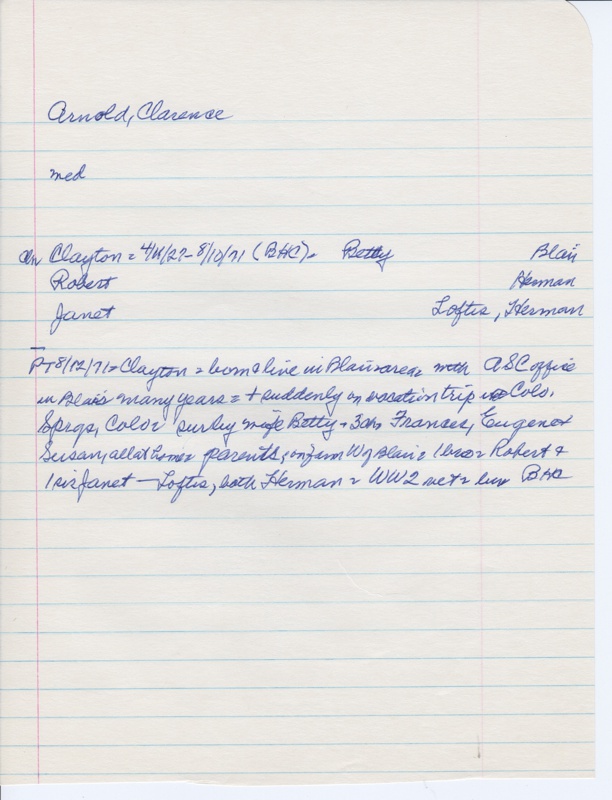 Arnold, Clarence
med
Clayton = 4/11/27-8/10/71 (BHC) - Betty Blair
Robert Herman
Janet Loftis, Herman
PT 8/12/71 = Clayton = born & live in Blair area = with ASC office
in Blair many years = + suddenly on vacation trip in Colo.
Sprgs, Colo = surv by wife Betty + 3 ch Frances, Eugene +
Susan, all at home = parents on farm W of Blair = 1 bro = Robert +
1 sis Janet - Loftis, both Herman = WW2 vet = bur BHC